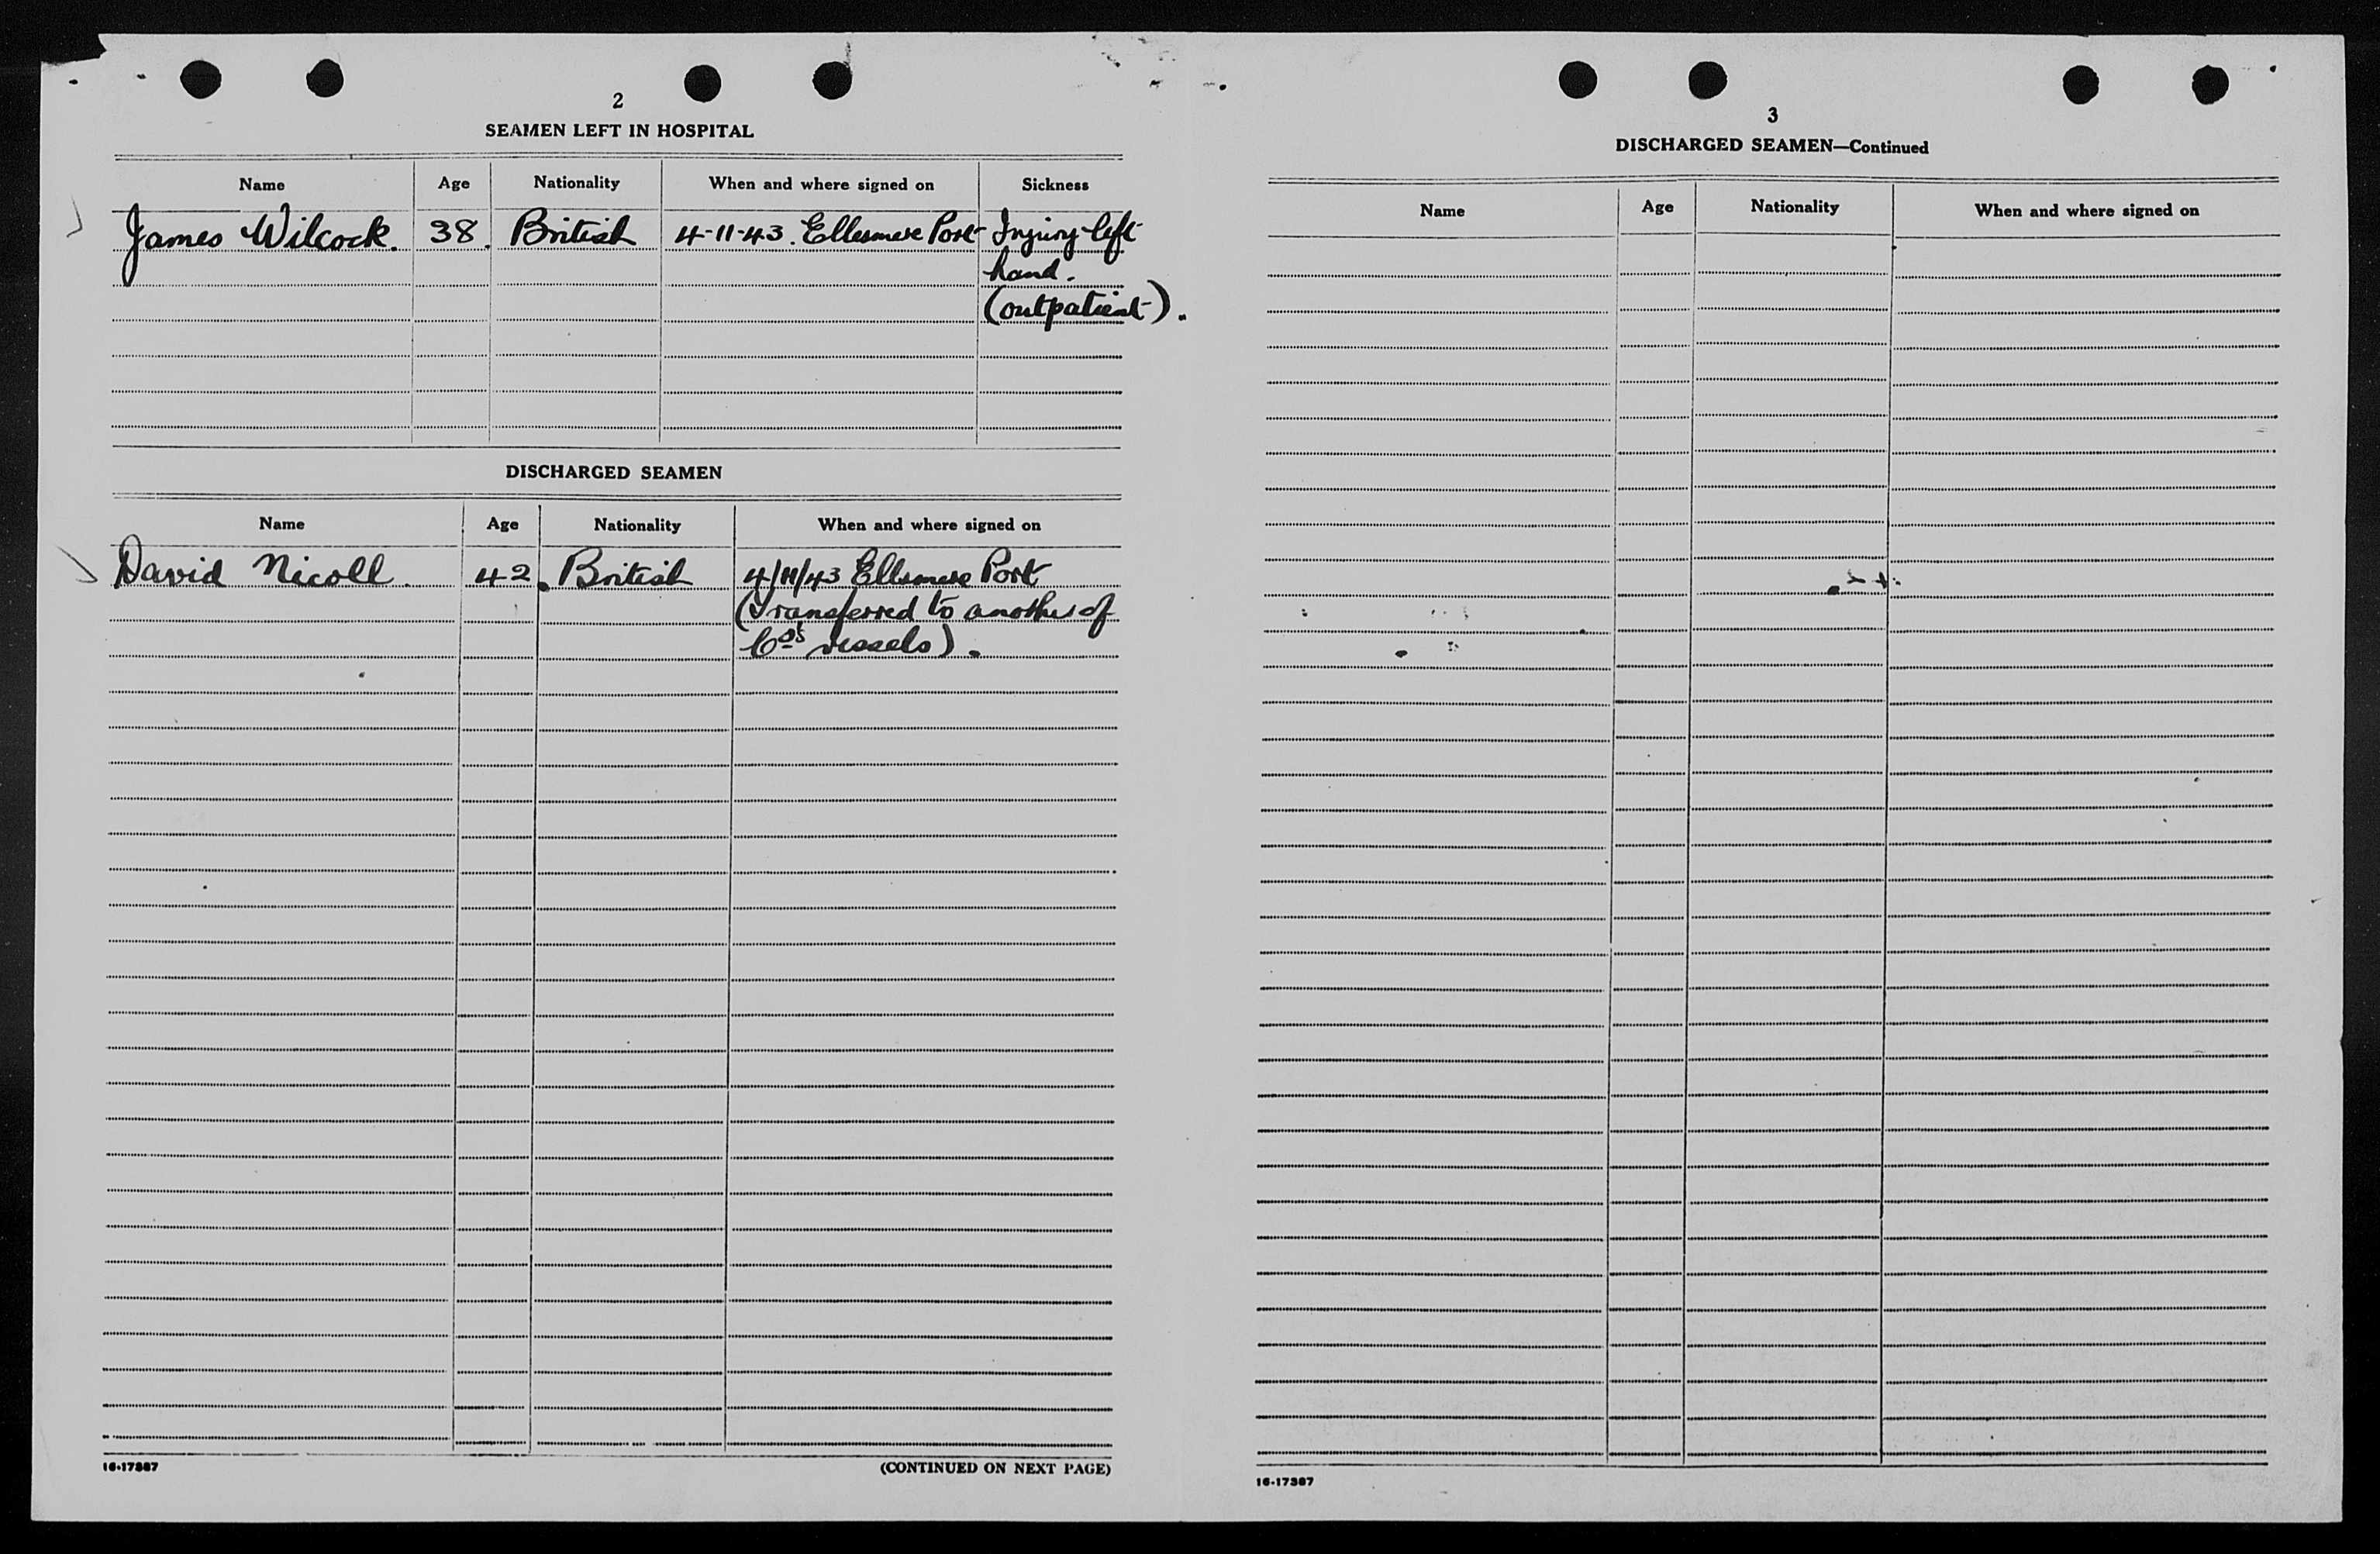 2
SEAMEN LEFT IN HOSPITAL
Name Age Nationality When and where signed on Sickness
James Wilcock. 38. British 4-11-43. Ellesmere Port Injury left
hand.
(outpatient).
DISCHARGED SEAMEN
Name Age Nationality When and where signed on
David Nicoll. 42. British 4/11/43 Ellesmere Port
(Transferred to another of
Cos vessels).
16-17387
(CONTINUED ON NEXT PAGE)
3
DISCHARGED SEAMEN—Continued
Name Age Nationality When and where signed on
16-17387